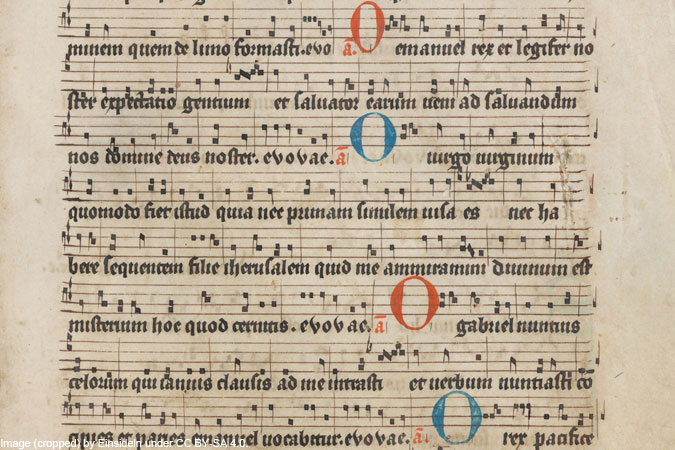 minem quem de limo formasti. evo a. O emanuel rex et legifer no
ster expectatio gentium et salvator earum veni ad salvandum
nos domine deus noster. evovae. a O virgo virginum
quomodo fiet istud quia nec primam similem visa es nec ha
bere sequentem filie iherusalem quid me ammiramini divinum est
misterium hoc quod cernitis. evovae. a O gabriel nuntius
celorum qui ianuis clausis ad me intrasti et verbum nuntiasti co
vocabitur. evovae. a O rex pacifice
Image (cropped) by Einsideln under CC BY-SA 4.0.